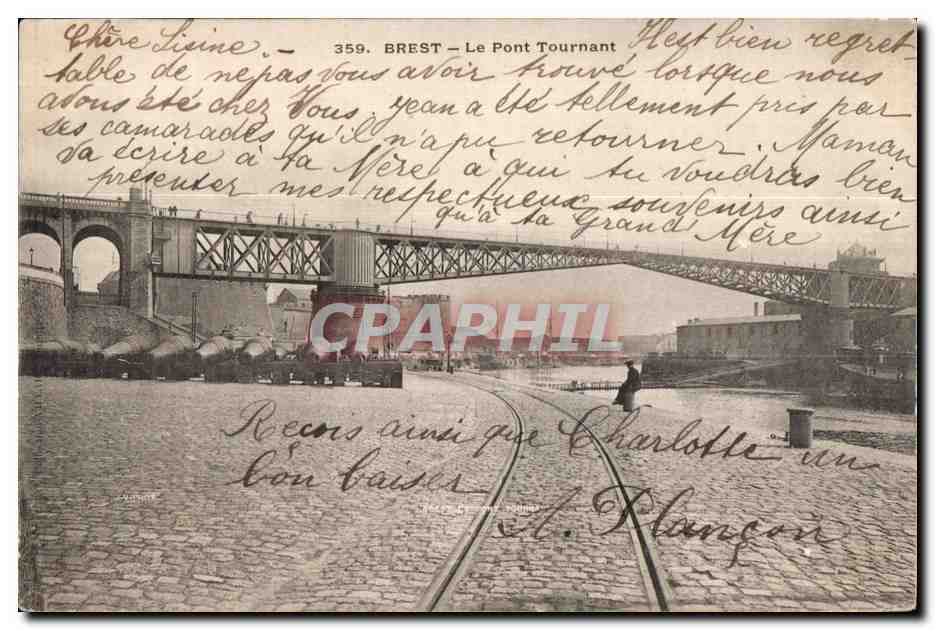 359. BREST — Le Pont Tournant
Chère Lisine. — Il est bien regret-
table de ne pas vous avoir trouvé lorsque nous
avons été chez Vous. Jean a été tellement pris par
ses camarades qu'il n'a pu retourner. Maman
va écrire à ta Mère à qui tu voudras bien
présenter mes respectueux souvenirs ainsi
qu'à ta Grand Mère
CPARPHIL
Reçois ainsi que Charlotte un
bon baiser
A. Plançon